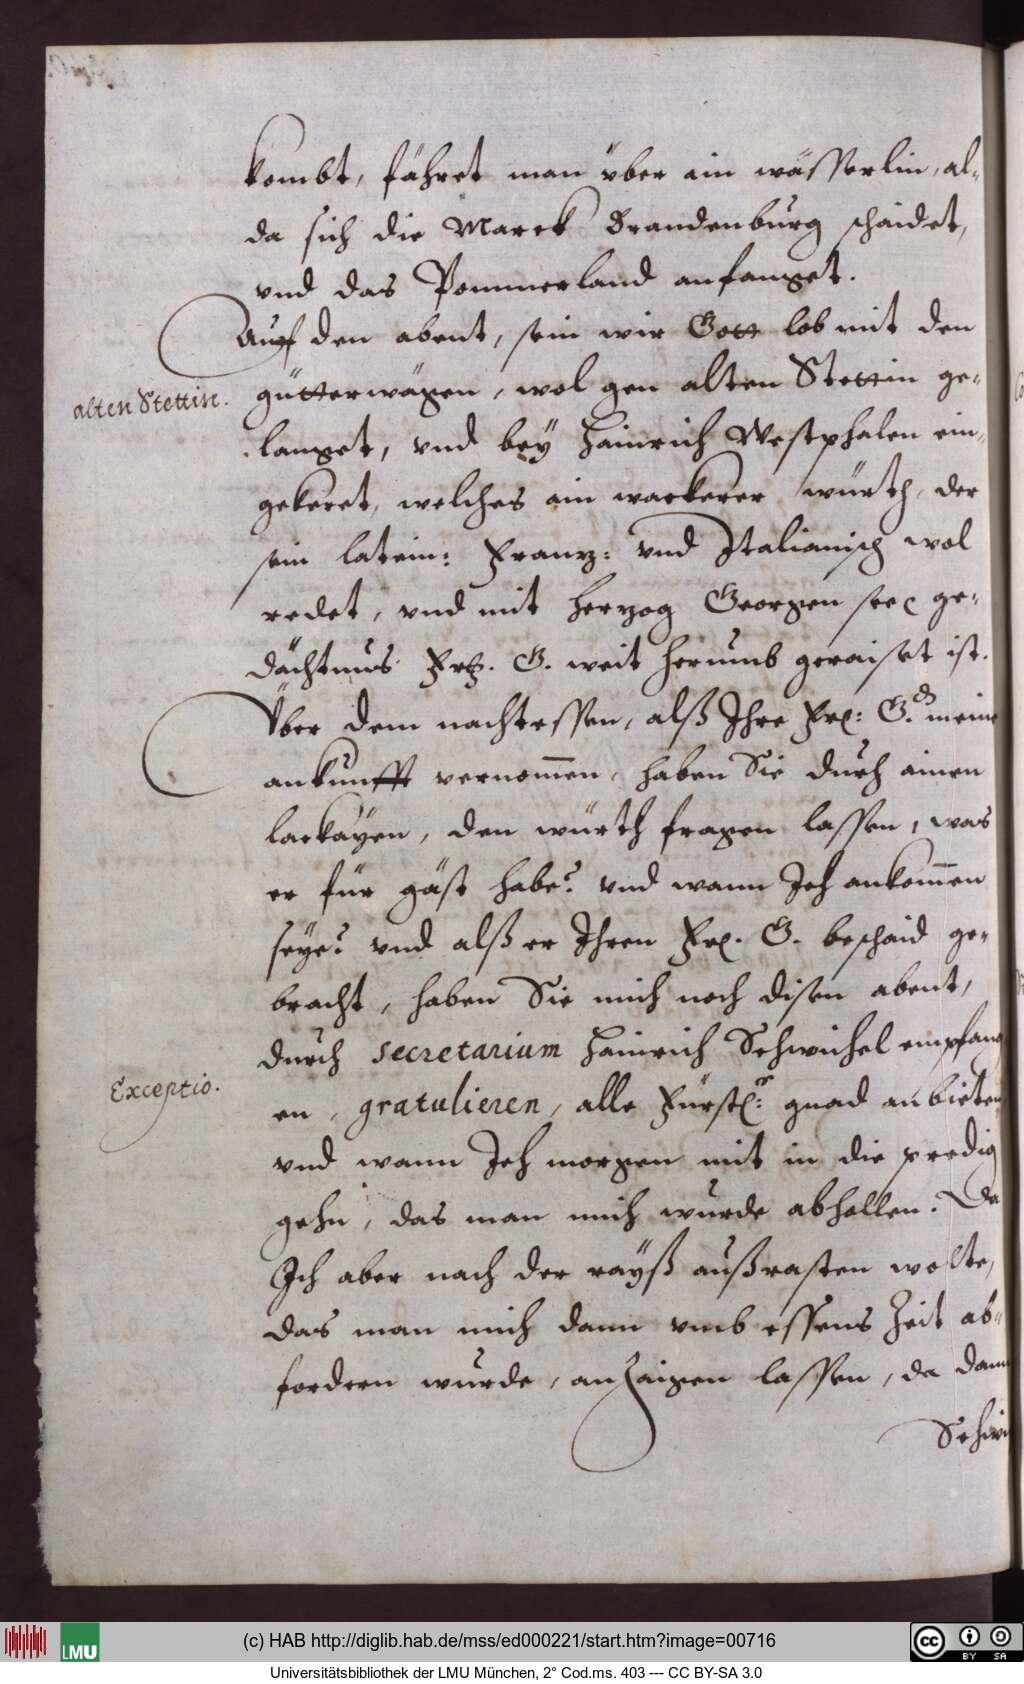 kombt, fähret man über ein wässerlin, al-
da sich die Marck Brandenburg schaidet,
vnd das Pommerland anfanget.
Auff den abent, sein wir Gott lob mit den
alten Stettin.
gütterwägen, wol gen alten Stettin ge-
langet, vnd bey Hainrich Westphalen ein-
gekeret, welches ain wackerer würth, der
sein latein: Franz: vnd Italianisch wol
redet, vnd mit herzog Georgen seel ge-
dächtnus Frl. G. weit herumb geraiset ist.
Über dem nachtessen, alß Ihre Frl: G.dn meine
ankunfft vernommen, haben Sie durch ainen
lackäyen, den würth fragen lassen, was
er für gäst habe? vnd wann Ich ankommen
seye? vnd alß er Ihren Frl. G. beschaid ge-
bracht, haben Sie mich noch disen abent,
durch secretarium Hainrich Schwichel empfang
Exceptio.
en, gratulieren, alle Fürstl:r gnad anbieten
vnd wann Ich morgen mit in die predig
gehn, das man mich wurde abhollen. Da
Ich aber nach der rayß außrasten wolte,
das man mich dann vmb essens Zeit ab-
fordern wurde, anzaigen lassen, da dann
Schwi
(c) HAB http://diglib.hab.de/mss/ed000221/start.htm?image=00716
LMU
BY SA
Universitätsbibliothek der LMU München, 2° Cod.ms. 403 --- CC BY-SA 3.0